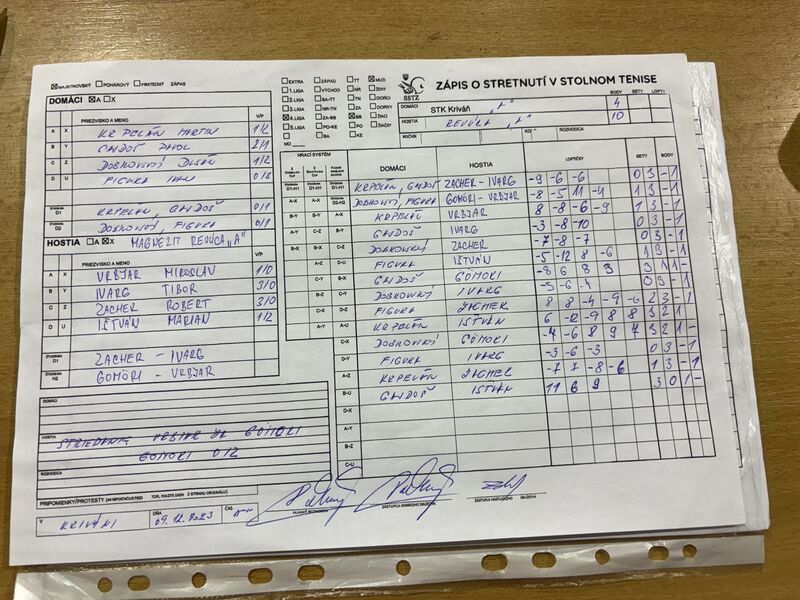 MAJSTROVSKÝ POHÁROVÝ PRIATEĽSKÝ ZÁPAS
DOMÁCI A X
PRIEZVISKO A MENO V/P
A X KRPELÁN MARTIN 1/2
B Y GAJDOŠ PAVOL 2/1
C Z DOBKOVSKÝ DUŠAN 1/2
D U FIGURA IVAN 0/3
D1 KRPELÁN, GAJDOŠ 0/1
D2 DOBKOVSKÝ, FIGURA 0/1
HOSTIA A X MAGNEZIT REVÚCA "A"
PRIEZVISKO A MENO V/P
A X VRBJAR MIROSLAV 1/0
B Y IVARG TIBOR 3/0
C Z ZACHER ROBERT 3/0
D U IŠTVÁN MARIAN 1/2
ZACHER - IVARG
H2 GOMÖRI - VRBJAR
DOMÁCI
HOSTIA
STRIEDANIE VRBJAR ZA GÖMORI
GÖMORI 0/2
ROZHODCA
PRIPOMIENKY/PROTESTY
V KRIVÁNI DŇA 09.12.2023 ČAS
EXTRA ZÁPAD TT MUŽI
1.LIGA VÝCHOD NR ŽENY
2.LIGA BA-TT TN DORCI
3.LIGA NR-TN ZA DORKY
4.LIGA ZA-BB BB ŽIACI
5.LIGA PO-KE PO ŽIAČKY
BA KE
MO
SSTZ
ZÁPIS O STRETNUTÍ V STOLNOM TENISE
BODY SETY LOPT.
DOMÁCI STK Kriváň "A" 4
HOSTIA REVÚCA "A" 10
ROČNÍK KOLO ROZHODCA
HRACÍ SYSTÉM DOMÁCI HOSTIA LOPTIČKY SETY BODY
D1-H1 D1-H1 D1-H1 KRPELÁN, GAJDOŠ ZACHER - IVARG -9 -6 -6 0 3 - 1
A-X A-X D2-H2 DOBKOVSKÝ, FIGURA GOMÖRI - VRBJAR -8 -5 11 -4 1 3 - 1
B-Y B-Y A-X KRPELÁN VRBJAR 8 -8 -6 -9 1 3 - 1
A-Y C-Z B-Y GAJDOŠ IVARG -3 -8 -10 0 3 - 1
B-X B-X C-Z DOBKOVSKÝ ZACHER -7 -8 -7 0 3 - 1
A-Z D-U FIGURA IŠTVÁN -5 -12 8 -6 1 3 - 1
C-Y B-X GAJDOŠ GÖMORI -8 6 8 3 3 1 1 -
B-Z C-Y DOBKOVSKÝ IVARG -3 -6 -4 0 3 - 1
C-X D-Z FIGURA ZACHER 8 8 -4 -9 -6 2 3 - 1
A-Y A-U KRPELÁN IŠTVÁN 6 -12 -9 8 8 3 2 1 -
C-X DOBKOVSKÝ GÖMORI -4 -6 8 9 7 3 2 1 -
D-Y FIGURA IVARG -3 -6 -3 0 3 - 1
A-Z KRPELÁN ZACHER -7 7 -8 -6 1 3 - 1
B-U GAJDOŠ IŠTVÁN 11 6 9 3 0 1 -
D-X
A-Y
B-Z
C-U
HLAVNÝ ROZHODCA ZÁSTUPCA DOMÁCEHO DRUŽSTVA ZÁSTUPCA HOSŤUJÚCEHO DRUŽSTVA